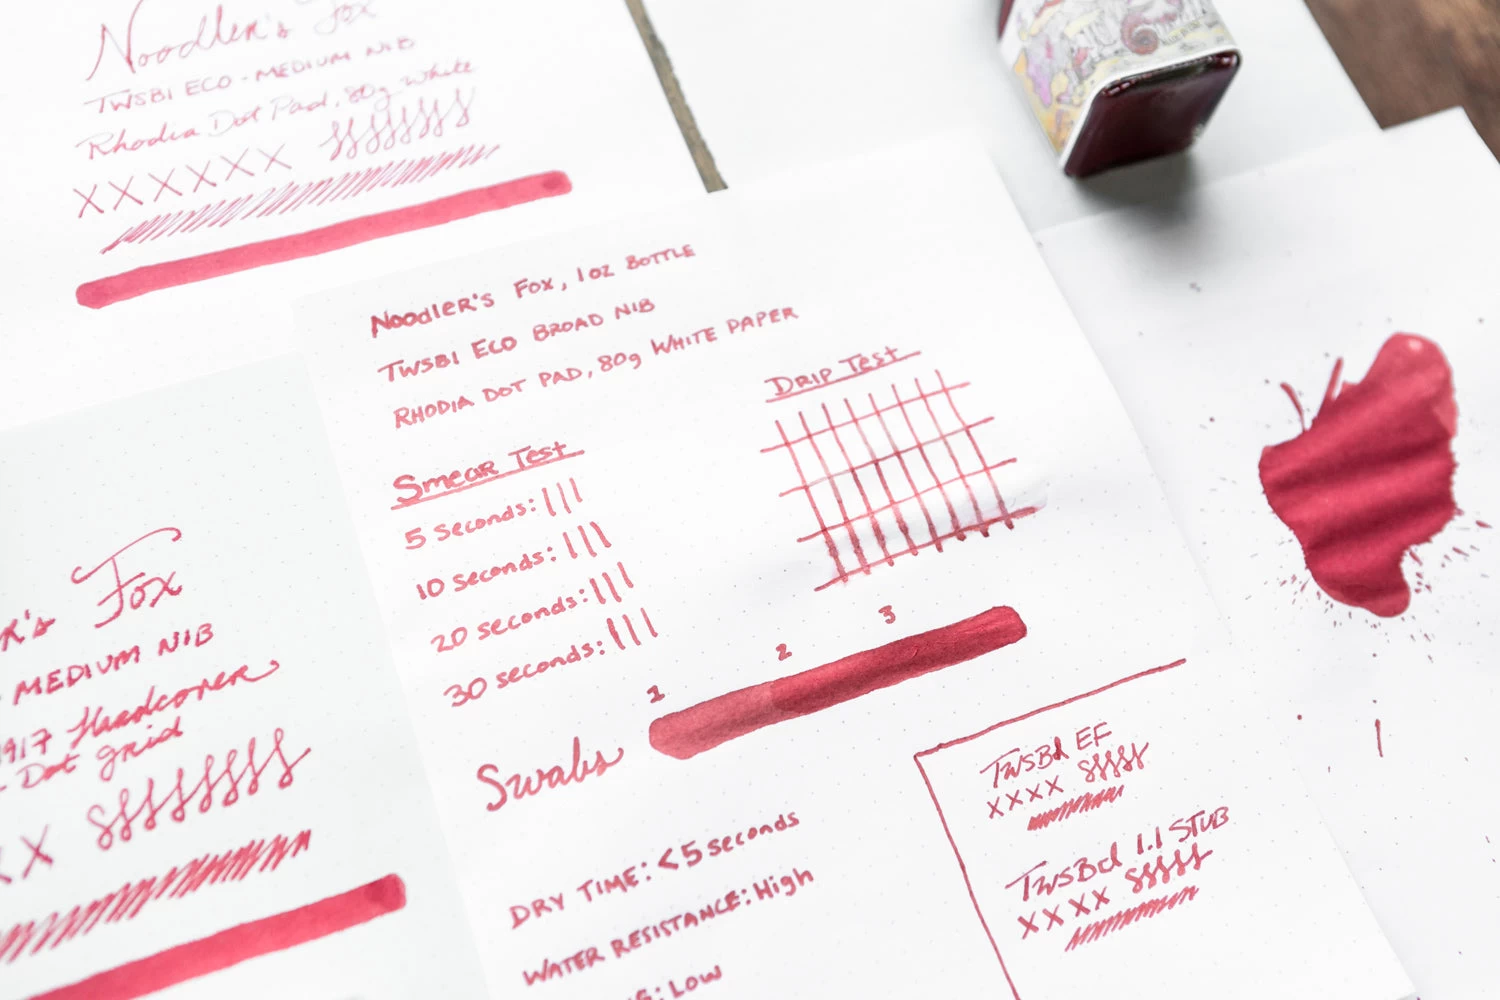 Noodler's Fox
TWSBI ECO - MEDIUM NIB
Rhodia Dot Pad, 80g White
X X X X X X
Noodler's Fox, 1oz BOTTLE
TWSBI ECO BROAD NIB
RHODIA DOT PAD, 80g WHITE PAPER
Smear Test
5 seconds:
10 seconds:
20 seconds:
30 seconds:
Drip Test
1 2 3
Swabs
DRY TIME: <5 seconds
WATER RESISTANCE: High
Low
TWSBI EF
X X X X
TWSBI 1.1 STUB
X X X X
Fox
MEDIUM NIB
Hardcover
Dot grid
X X